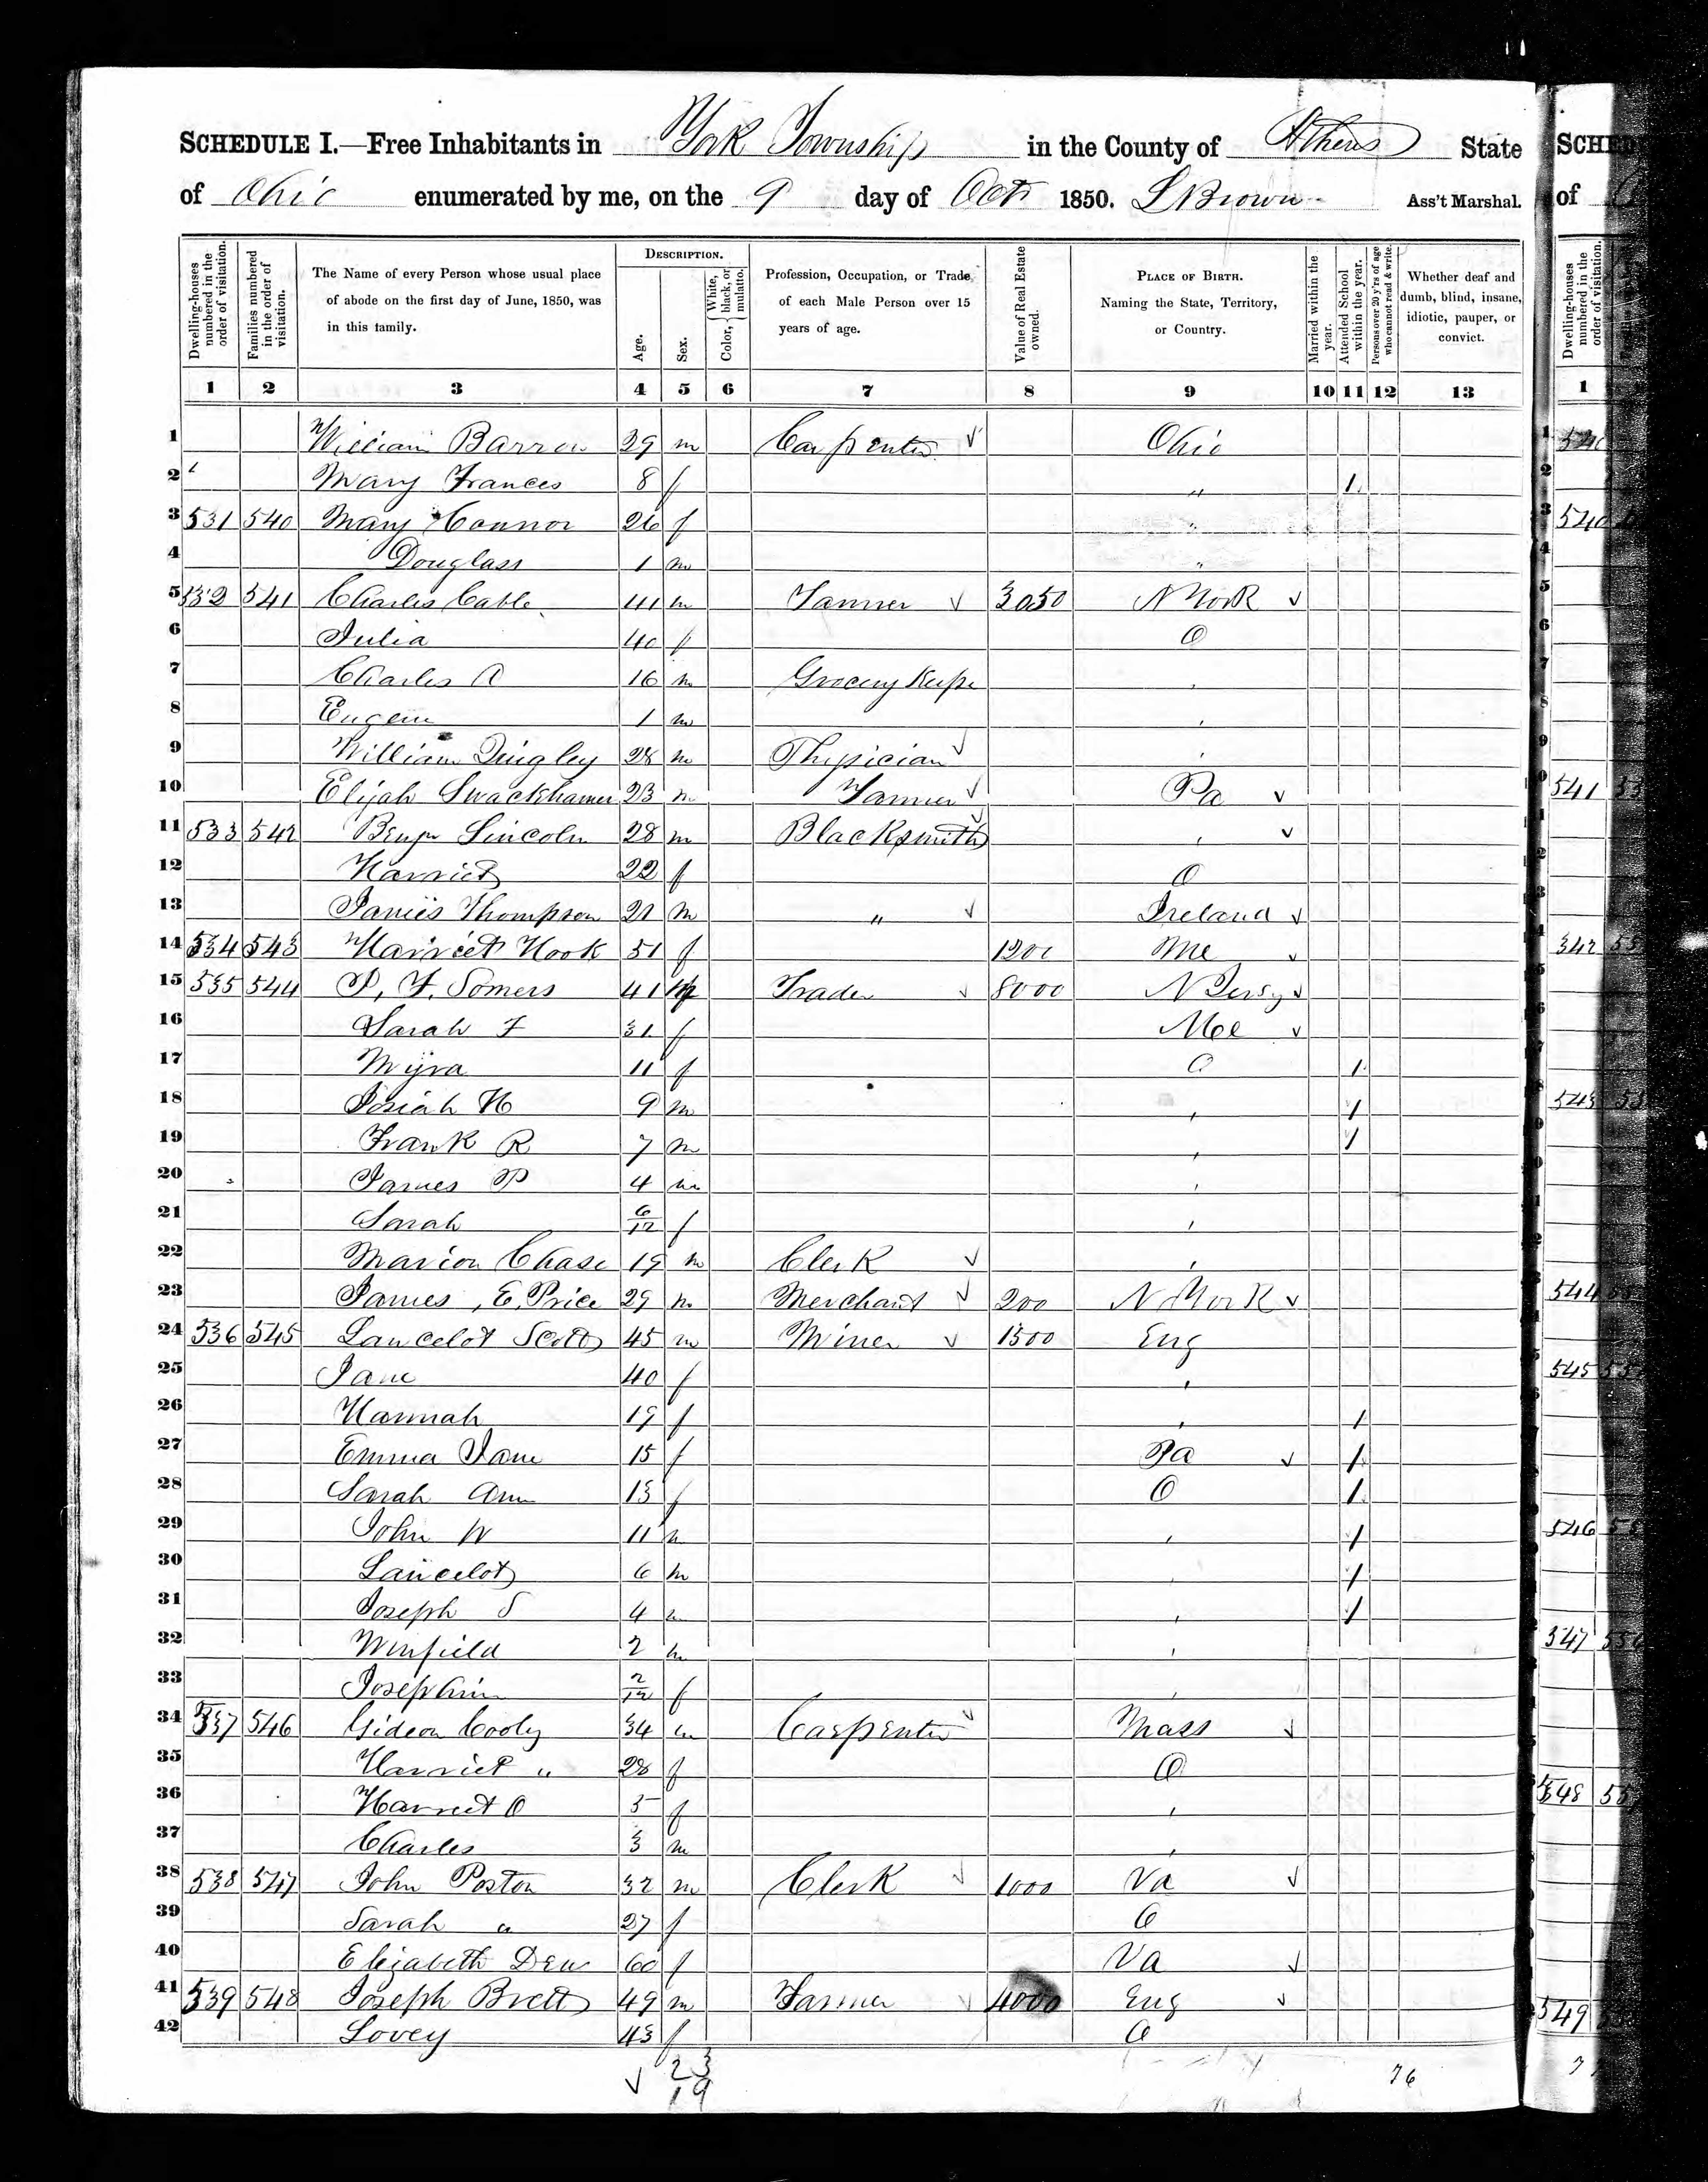 SCHEDULE I.—Free Inhabitants in York Township in the County of Athens State
of Ohio enumerated by me, on the 9 day of Oct 1850. L Brown Ass't Marshal.
Dwelling-houses numbered in the order of visitation.
Families numbered in the order of visitation.
The Name of every Person whose usual place of abode on the first day of June, 1850, was in this family.
DESCRIPTION.
Age.
Sex.
Color, White, black, or mulatto.
Profession, Occupation, or Trade of each Male Person over 15 years of age.
Value of Real Estate owned.
PLACE OF BIRTH. Naming the State, Territory, or Country.
Married within the year.
Attended School within the year.
Persons over 20 y'rs of age who cannot read & write.
Whether deaf and dumb, blind, insane, idiotic, pauper, or convict.
1 2 3 4 5 6 7 8 9 10 11 12 13
1 William Barron 29 m Carpenter Ohio
2 Mary Frances 8 f " 1
3 531 540 Mary Connor 26 f "
4 Douglass 1 m "
5 532 541 Charles Cable 41 m Tanner 3050 N York
6 Julia 40 f O
7 Charles A 16 m Grocery Keeper "
8 Eugene 1 m "
9 William Dingley 28 m Physician "
10 Elijah Swackhamer 23 m Tanner Pa
11 533 542 Benjn Lincoln 28 m Blacksmith "
12 Harriet 22 f O
13 James Thompson 21 m " Ireland
14 534 543 Harriet Hook 51 f 1200 Me
15 535 544 P, F. Somers 41 m Trader 8000 N Jersy
16 Sarah F 31 f Me
17 Myra 11 f O 1
18 Josiah H 9 m " 1
19 Frank R 7 m " 1
20 James P 4 m "
21 Sarah 6/12 f "
22 Marion Chase 19 m Clerk "
23 James, E, Price 29 m Merchant 200 N York
24 536 545 Lancelot Scott 45 m Miner 1500 Eng
25 Jane 40 f "
26 Hannah 19 f " 1
27 Emma Jane 15 f Pa 1
28 Sarah Ann 13 f O 1
29 John W 11 m " 1
30 Lancelot 6 m " 1
31 Joseph S 4 m " 1
32 Winfield 2 m "
33 Josephine 2/12 f "
34 537 546 Gideon Cooly 34 m Carpenter Mass
35 Harriet " 28 f O
36 Harriet O 5 f "
37 Charles 3 m "
38 538 547 John Poston 32 m Clerk 1000 Va
39 Sarah " 27 f O
40 Elizabeth Dew 60 f Va
41 539 548 Joseph Brett 49 m Farmer 4000 Eng
42 Lovey 43 f O
23
19
76
SCHE
of
Dwelling-houses numbered in the order of visitation.
1
540
541
542
543
544
545
546
547
548
549